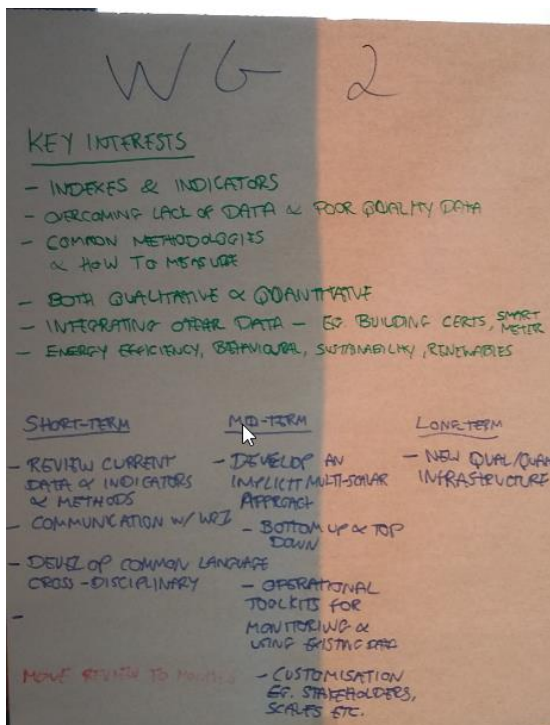 WG 2
KEY INTERESTS
- INDEXES & INDICATORS
- OVERCOMING LACK OF DATA & POOR QUALITY DATA
- COMMON METHODOLOGIES
& HOW TO MEASURE
- BOTH QUALITATIVE & QUANTITATIVE
- INTEGRATING OTHER DATA - EG. BUILDING CERTS, SMART
METER
- ENERGY EFFICIENCY, BEHAVIOURAL, SUSTAINABILITY, RENEWABLES
SHORT-TERM
- REVIEW CURRENT
DATA & INDICATORS
& METHODS
- COMMUNICATION W/
- DEVELOP COMMON LANGUAGE
CROSS-DISCIPLINARY
-
MOVE REVIEW TO
MID-TERM
- DEVELOP AN
IMPLICIT MULTI-SCALAR
APPROACH
- BOTTOM UP & TOP
DOWN
- OPERATIONAL
TOOLKITS FOR
MONITORING &
USING EXISTING DATA
- CUSTOMISATION
EG. STAKEHOLDERS,
SCALES ETC.
LONG-TERM
- NEW QUAL/QUAN
INFRASTRUCTURE